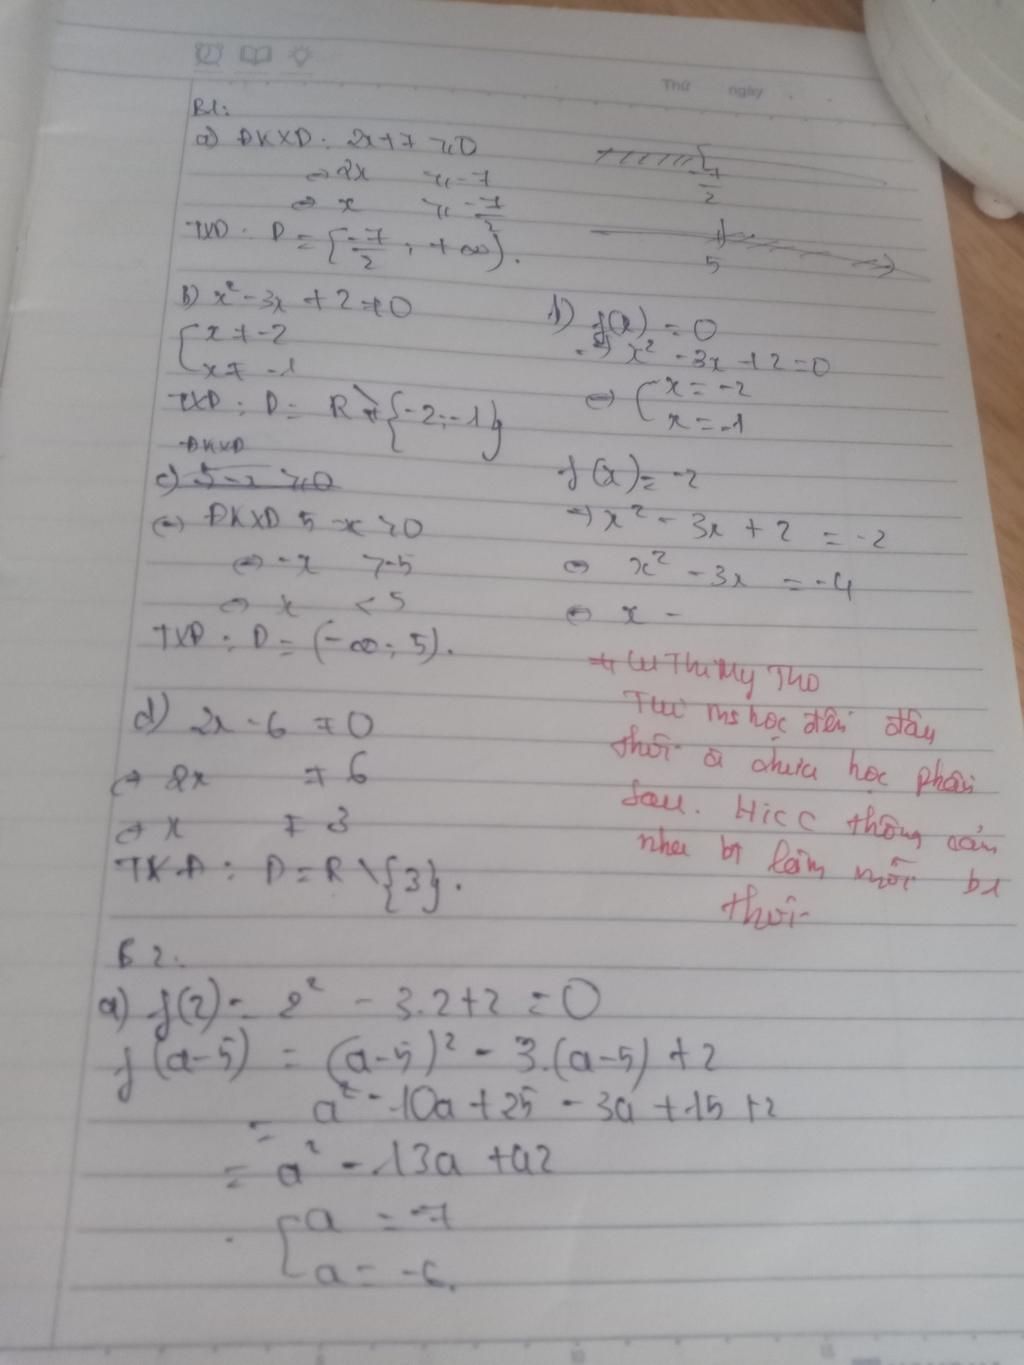 Thứ ngày
B1:
a) ĐKXĐ: 2x+7 ⩾0
⇔ 2x ⩾ -7
⇔ x ⩾ -7/2
TXĐ: D = [-7/2; +∞).
-7/2
5
b) x² - 3x + 2 ≠ 0
{x ≠ -2
x ≠ -1
TXĐ: D = R \ {-2; -1}
ĐKXĐ
c) 5-x ⩾0
⇔ ĐKXĐ 5-x >0
⇔ -x >-5
⇔ x < 5
TXĐ: D = (-∞; 5).
d) 2x - 6 ≠ 0
⇔ 2x ≠ 6
⇔ x ≠ 3
TXĐ: D = R \ {3}.
b) f(x) = 0
⇒ x² - 3x + 2 = 0
⇔ {x = -2
x = -1
f(x) = -2
⇒ x² - 3x + 2 = -2
⇔ x² - 3x = -4
⇔ x =
Thị Mỹ Tho
ms học đến đây
thôi ạ chưa học phần
sau. Hicc thông cảm
nha bt làm mỗi b1
thôi
B2.
a) f(2) = 2² - 3.2+2 = 0
f(a-5) = (a-5)² - 3.(a-5) + 2
= a² - 10a + 25 - 3a + 15 + 2
= a² - 13a + 42
[a = -7
a = -6.